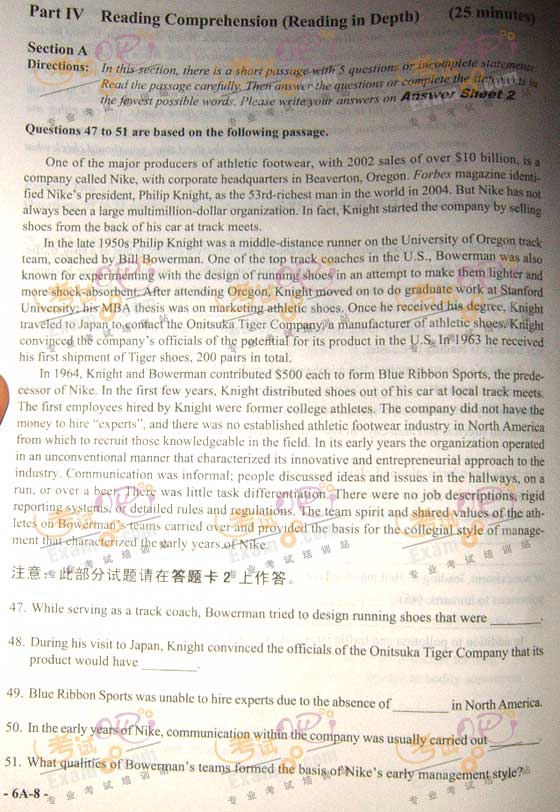 Part IV Reading Comprehension (Reading in Depth) (25 minutes)
Section A
Directions: In this section, there is a short passage with 5 questions or incomplete statements.
Read the passage carefully. Then answer the questions or complete the statements in
the fewest possible words. Please write your answers on Answer Sheet 2
Questions 47 to 51 are based on the following passage.
One of the major producers of athletic footwear, with 2002 sales of over $10 billion, is a
company called Nike, with corporate headquarters in Beaverton, Oregon. Forbes magazine identi-
fied Nike's president, Philip Knight, as the 53rd-richest man in the world in 2004. But Nike has not
always been a large multimillion-dollar organization. In fact, Knight started the company by selling
shoes from the back of his car at track meets.
In the late 1950s Philip Knight was a middle-distance runner on the University of Oregon track
team, coached by Bill Bowerman. One of the top track coaches in the U.S., Bowerman was also
known for experimenting with the design of running shoes in an attempt to make them lighter and
more shock-absorbent. After attending Oregon, Knight moved on to do graduate work at Stanford
University; his MBA thesis was on marketing athletic shoes. Once he received his degree, Knight
traveled to Japan to contact the Onitsuka Tiger Company, a manufacturer of athletic shoes. Knight
convinced the company's officials of the potential for its product in the U.S. In 1963 he received
his first shipment of Tiger shoes, 200 pairs in total.
In 1964, Knight and Bowerman contributed $500 each to form Blue Ribbon Sports, the prede-
cessor of Nike. In the first few years, Knight distributed shoes out of his car at local track meets.
The first employees hired by Knight were former college athletes. The company did not have the
money to hire "experts", and there was no established athletic footwear industry in North America
from which to recruit those knowledgeable in the field. In its early years the organization operated
in an unconventional manner that characterized its innovative and entrepreneurial approach to the
industry. Communication was informal; people discussed ideas and issues in the hallways, on a
run, or over a beer. There was little task differentiation. There were no job descriptions, rigid
reporting systems, or detailed rules and regulations. The team spirit and shared values of the ath-
letes on Bowerman's teams carried over and provided the basis for the collegial style of manage-
ment that characterized the early years of Nike.
注意:此部分试题请在答题卡2上作答。
47. While serving as a track coach, Bowerman tried to design running shoes that were ________.
48. During his visit to Japan, Knight convinced the officials of the Onitsuka Tiger Company that its
product would have ________.
49. Blue Ribbon Sports was unable to hire experts due to the absence of ________ in North America.
50. In the early years of Nike, communication within the company was usually carried out ________.
51. What qualities of Bowerman's teams formed the basis of Nike's early management style?
- 6A-8 -